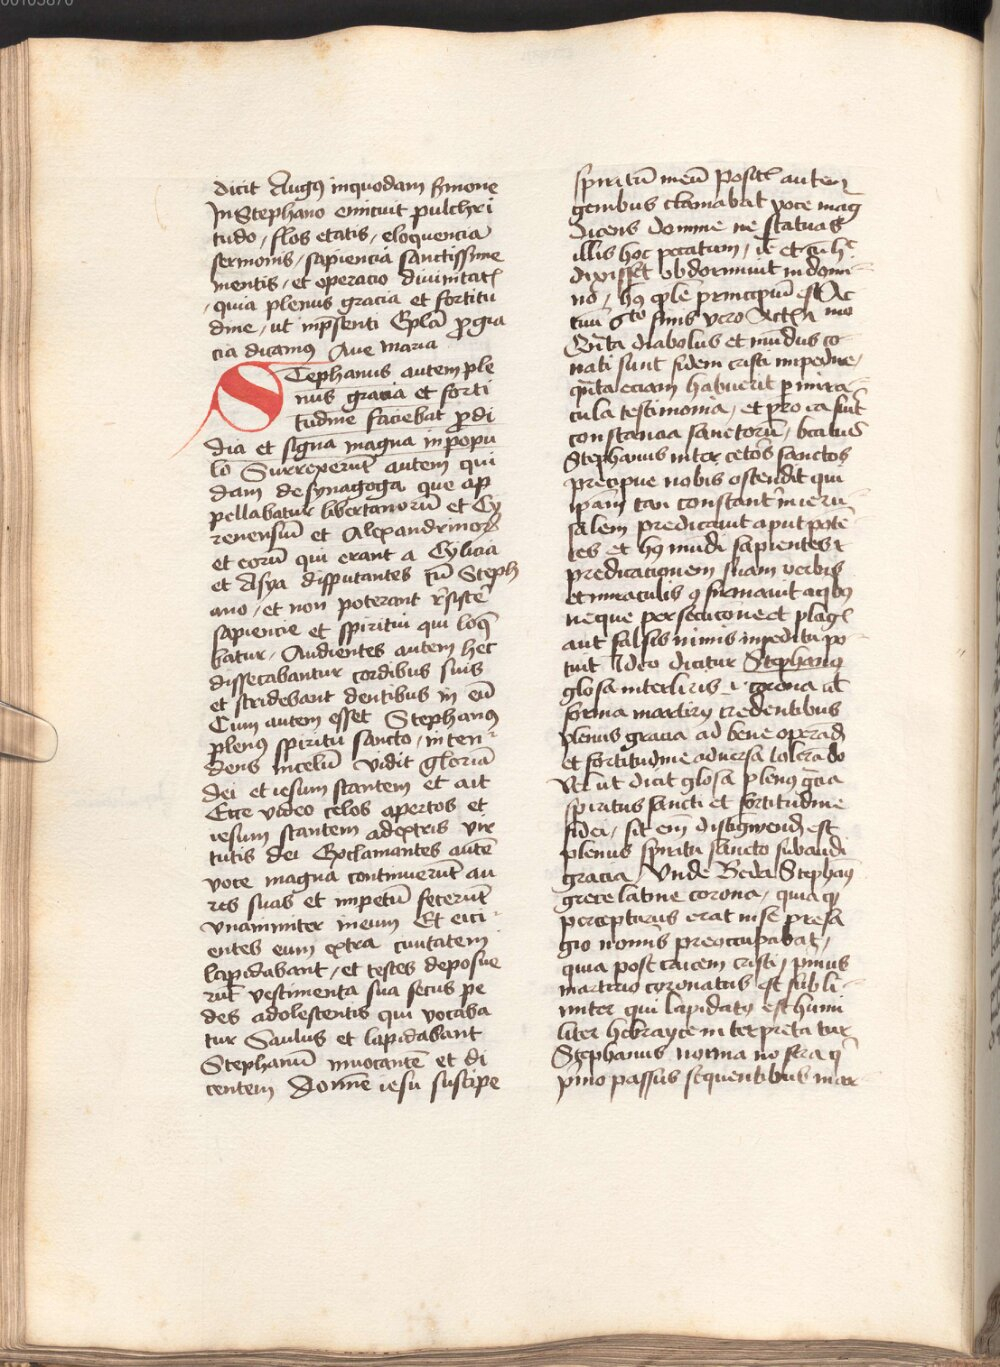 00105870
dicit Augꝰ in quodam sermone
In Stephano emicuit pulchri
tudo / flos etatis / eloquencia
sermonis / sapiencia sanctissime
mentis / et operacio diuinitatꝭ
quia plenus gracia et fortitu
dine / ut in p̄senti Ep̄la ꝓ gra
cia dicamꝰ Aue maria
Stephanus autem ple
nus gracia et forti
tudine faciebat ꝓdi
dia et signa magna in popu
lo Surrexerūt autem qui
dam de synagoga que ap
pellabatur libertinorū et Cy
renensiū et Alexandrinoꝝ
et eorū qui erant a Cylicia
et Asya disputantes cū Steph
ano / et non poterant r̄sistē
sapiencie et spiritui qui loq̄
batur / Audientes autem hec
dissecabantur cordibus suis
et stridebant dentibus in eū
Cum autem esset Stephanꝰ
plenꝰ spiritu sancto / inten
dens in celū vidit gloriā
dei et iesum stantem et ait
Ecce video celos apertos et
iesum stantem a dextris vir
tutis dei Exclamantes autē
voce magna continuerūt au
res suas et impetū fecerūt
vnanimiter in eum Et eici
entes eum extra ciuitatem
lapidabant / et testes deposue
rūt vestimenta sua secus pe
des adolescentis qui vocaba
tur Saulus et lapidabant
Stephanū inuocantē et di
centem Domīe iesu suscipe
spiritū meū Positꝭ autem
genibus clamabat voce mag
dicens domine ne statuas
illis hoc peccatum / et cū hͨ
dixisset obdormiuit in domi
no / hꝰ ep̄le principiū est Ac
tuū 6to finis vero Actꝭ
Q̄nta diabolus et mūdus co
nati sunt fidem cristi impedire /
q̄nta eciam habuerit p mira
cula testimonia / et pro ea fuit
constancia sanctorū / beatus
Stephanus inter cetos sanctos
precipue nobis ostendit qui
ip̄am tan constant̄ in ieru
salem predicauit aput potē
tes et hꝰ mūdi sapientes et
predicacionem suam verbis
et miraculis ꝯfirmauit a qbꝰ
neque persecucione et plagꝭ
aut falsis nimis inpeditꝰ po
tuit Ideo dicitur Stephanꝰ
glosa interliris .i. corona ul̄
forma martirij credentibus
plenus gracia ad bene operād
et fortitudine aduersa tolerādo
Vel ut dicit glosa plenꝰ gr̄cia
spiritus sancti et fortitudine
fidei / sic em̄ distigwend est
plenus spiritu sancto subaudi
gracia Vnde Beda Stephanꝰ
grece latine corona / quia qꝫ
percepturus erat in se presa
gio nominis preoccupabat /
quia post crucem cristi / primus
martirio coronatus est subli
miter qui lapidatꝰ est humi
liter hebrayce interpretatur
Stephanus norma nostra q̄
primo passus sequentibus mar